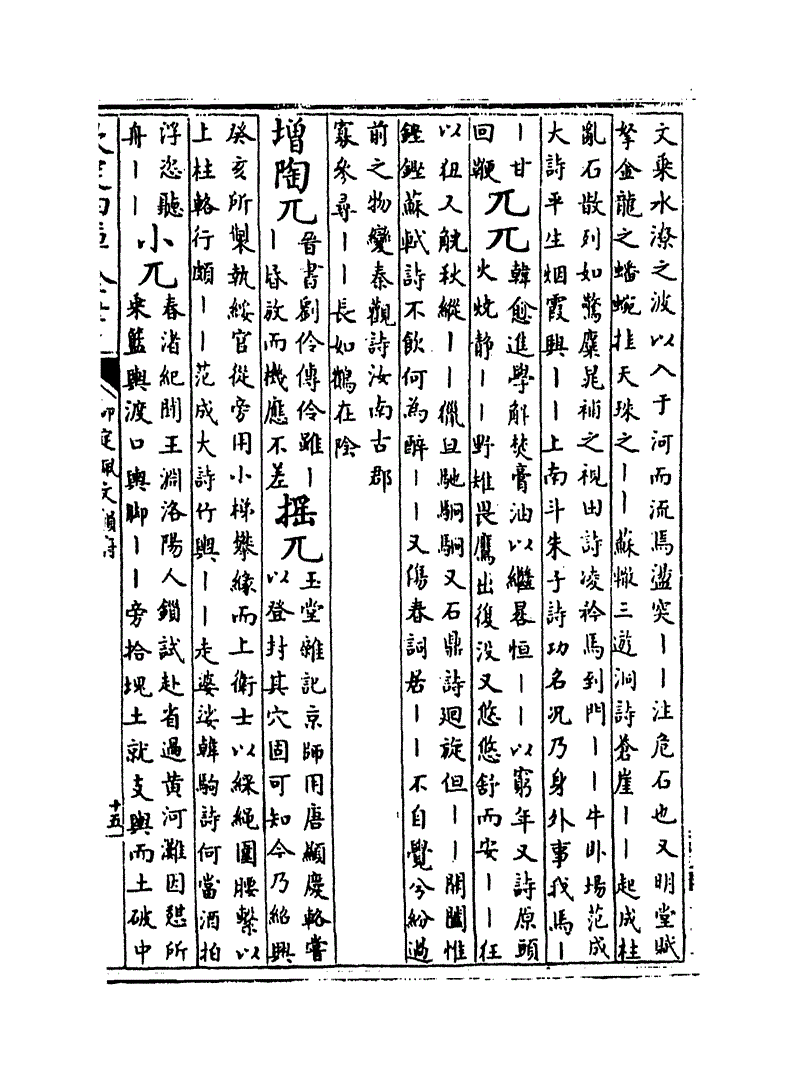 文乘水潦之波以入于河而流焉溢突丨丨注危石也又明堂賦
拏金龍之蟠蜿挂天珠之丨丨蘇轍三遊洞詩蒼崖丨丨起成柱
亂石散列如驚麇晁補之視田詩凌衿馬到門丨丨牛卧場范成
大詩平生烟霞興丨丨上南斗朱子詩功名况乃身外事我馬丨
丨甘
回鞭
兀兀
韓愈進學解焚膏油以繼晷恒丨丨以窮年又詩原頭
火燒静丨丨野雉畏鷹出復没又悠悠舒而安丨丨狂
以狃又觥秋縱丨丨獵旦馳駉駉又石鼎詩迴旋但丨丨開闔惟
鏗鏗蘇軾詩不飲何為醉丨丨又傷春詞居丨丨不自覺兮紛過
前之物變秦觀詩汝南古郡
寡參尋丨丨長如鶴在陰
增陶兀
晉書劉伶傳伶雖丨
丨昏放而機應不差
摇兀
玉堂雜記京師用唐顯慶輅嘗
以登封其穴固可知今乃紹興
癸亥所製執綏官從旁用小梯攀緣而上衛士以綵繩圍腰繫以
上柱輅行頗丨丨范成大詩竹輿丨丨走婆娑韓駒詩何當酒拍
浮恣聽
舟丨丨
小兀
春渚紀聞王淵洛陽人鎖試赴省過黄河灘因憇所
乘籃輿渡口輿脚丨丨旁拾塊土就支輿而土破中
御定佩文韻府
十五